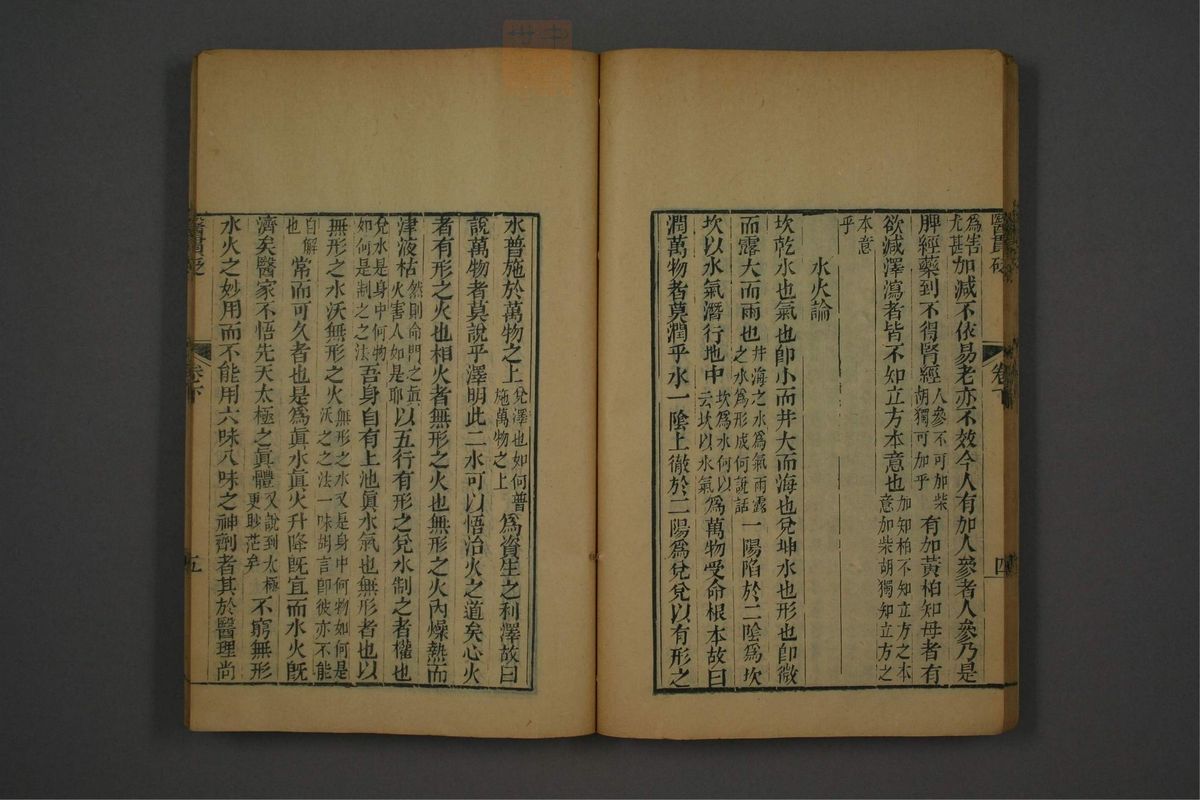 醫貫砭 卷下 四
為害尤甚加減不依易老亦不效今人有加人參者人參乃是
脾經藥到不得腎經人參不可加柴胡獨可加乎有加黃柏知母者有
欲減澤瀉者皆不知立方本意也加知柏不知立方之本意加柴胡獨知立方之
本意乎
水火論
坎乾水也氣也卽小而井大而海也兌坤水也形也卽微
而露大而雨也井海之水爲氣雨露之水爲形成何說話一陽陷於二陰爲坎
坎以水氣潛行地中坎爲水何以云坎以水氣爲萬物受命根本故曰
潤萬物者莫潤乎水一陰上徹於二陽爲兌兌以有形之
水普施於萬物之上兌澤也如何普施萬物之上爲資生之利澤故曰
說萬物者莫說乎澤明此二水可以悟治火之道矣心火
者有形之火也相火者無形之火也無形之火內燥熱而
津液枯然則命門之眞火害人如是耶以五行有形之兌水制之者權也
兌水是身中何物如何是制之之法吾身自有上池眞水氣也無形者也以
無形之水沃無形之火無形之水又是身中何物如何是沃之之法一味胡言卽彼亦不能
自解也常而可久者也是爲眞水眞火升降旣宜而水火旣
濟矣醫家不悟先天太極之眞體又說到太極更眇茫矣不窮無形
水火之妙用而不能用六味八味之神劑者其於醫理尚
醫貫砭 卷下 五